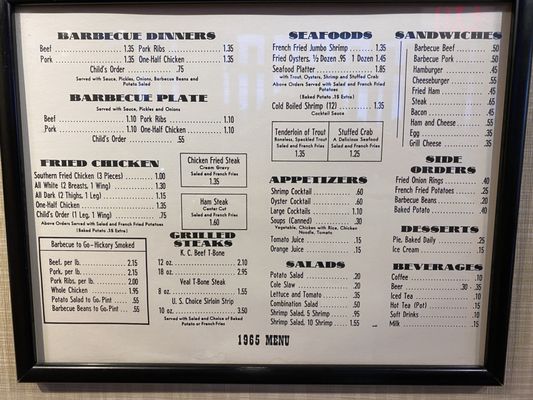 BARBECUE DINNERS
Beef 1.35 Pork Ribs 1.35
Pork 1.35 One-Half Chicken 1.35
Child's Order .75
Served with Sauce, Pickles, Onions, Barbecue Beans and
Potato Salad
BARBECUE PLATE
Served with Sauce, Pickles and Onions
Beef 1.10 Pork Ribs 1.10
Pork 1.10 One-Half Chicken 1.10
Child's Order .55
FRIED CHICKEN
Southern Fried Chicken (3 Pieces) 1.00
All White (2 Breasts, 1 Wing) 1.30
All Dark (2 Thighs, 1 Leg) 1.15
One-Half Chicken 1.35
Child's Order (1 Leg, 1 Wing) .75
Above Orders Served with Salad and French Fried Potatoes
(Baked Potato .15 Extra)
Chicken Fried Steak
Cream Gravy
Salad and French Fries
1.35
Ham Steak
Center Cut
Salad and French Fries
1.60
Barbecue to Go-Hickory Smoked
Beef, per lb. 2.15
Pork, per lb. 2.15
Pork Ribs, per lb. 2.00
Whole Chicken 1.95
Potato Salad to Go-Pint .55
Barbecue Beans to Go-Pint .55
GRILLED
STEAKS
K. C. Beef T-Bone
12 oz. 2.10
18 oz. 2.95
Veal T-Bone Steak
8 oz. 1.55
U. S. Choice Sirloin Strip
10 oz. 3.50
Served with Salad and Choice of Baked
Potato or French Fries
SEAFOODS
French Fried Jumbo Shrimp 1.35
Fried Oysters, ½ Dozen .95 1 Dozen 1.45
Seafood Platter 1.85
with Trout, Oysters, Shrimp and Stuffed Crab
Above Orders Served with Salad and French Fried
Potatoes
(Baked Potato .15 Extra)
Cold Boiled Shrimp (12) 1.35
Cocktail Sauce
Tenderloin of Trout
Boneless, Speckled Trout
Salad and French Fries
1.35
Stuffed Crab
A Delicious Seafood
Salad and French Fries
1.25
APPETIZERS
Shrimp Cocktail .60
Oyster Cocktail .60
Large Cocktails 1.10
Soups (Canned) .30
Vegetable, Chicken with Rice, Chicken
Noodle, Tomato
Tomato Juice .15
Orange Juice .15
SALADS
Potato Salad .20
Cole Slaw .20
Lettuce and Tomato .35
Combination Salad .50
Shrimp Salad, 5 Shrimp .95
Shrimp Salad, 10 Shrimp 1.55
SANDWICHES
Barbecue Beef .50
Barbecue Pork .50
Hamburger .45
Cheeseburger .55
Fried Ham .45
Steak .65
Bacon .45
Ham and Cheese .55
Egg .35
Grill Cheese .35
SIDE
ORDERS
Fried Onion Rings .40
French Fried Potatoes .25
Barbecue Beans .20
Baked Potato .40
DESSERTS
Pie, Baked Daily .25
Ice Cream .15
BEVERAGES
Coffee .10
Beer .30 .35
Iced Tea .10
Hot Tea (Pot) .15
Soft Drinks .10
Milk .15
1965 MENU